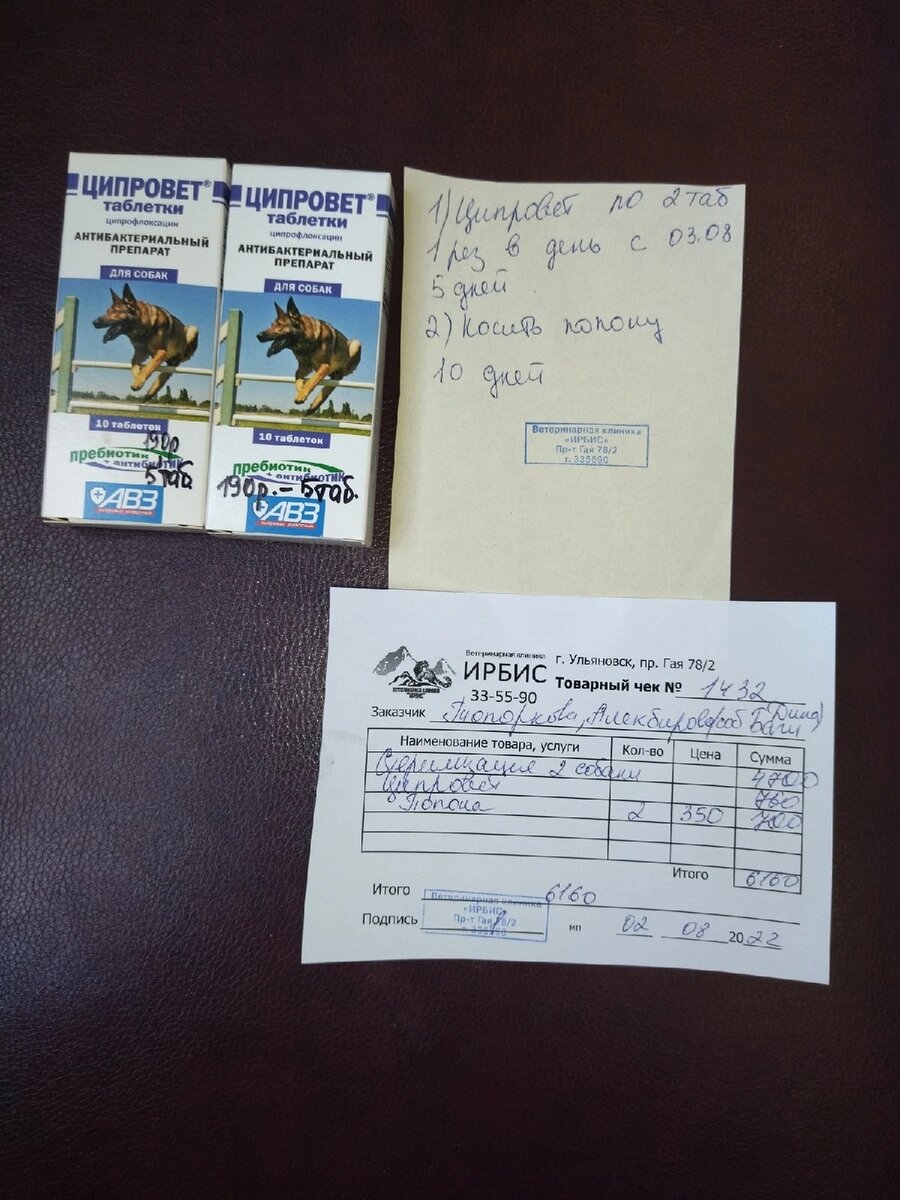 ЦИПРОВЕТ®
таблетки
ципрофлоксацин
АНТИБАКТЕРИАЛЬНЫЙ
ПРЕПАРАТ
ДЛЯ СОБАК
10 таблеток
190р
5таб
пребиотик
+ антибиотик
АВЗ
ЦИПРОВЕТ®
таблетки
ципрофлоксацин
АНТИБАКТЕРИАЛЬНЫЙ
ПРЕПАРАТ
ДЛЯ СОБАК
10 таблеток
пребиотик
+ антибиотик
190р.-5таб.
АВЗ
1) Ципровет по 2 таб
1 раз в день с 03.08
5 дней.
2) Носить попону
10 дней
Ветеринарная клиника
«ИРБИС»
Пр-т Гая 78/2
т. 335590
Ветеринарная клиника
ИРБИС
33-55-90
г. Ульяновск, пр. Гая 78/2
Товарный чек № 1432
Заказчик Топоркова,
Наименование товара, услуги Кол-во Цена Сумма
Стерилизация 2 собаки 4700
Ципровет 760
Попона 2 350 700
Итого 6160
Итого 6160
Подпись мп 02 08 2022
Ветеринарная клиника
«ИРБИС»
Пр-т Гая 78/2
т. 335590